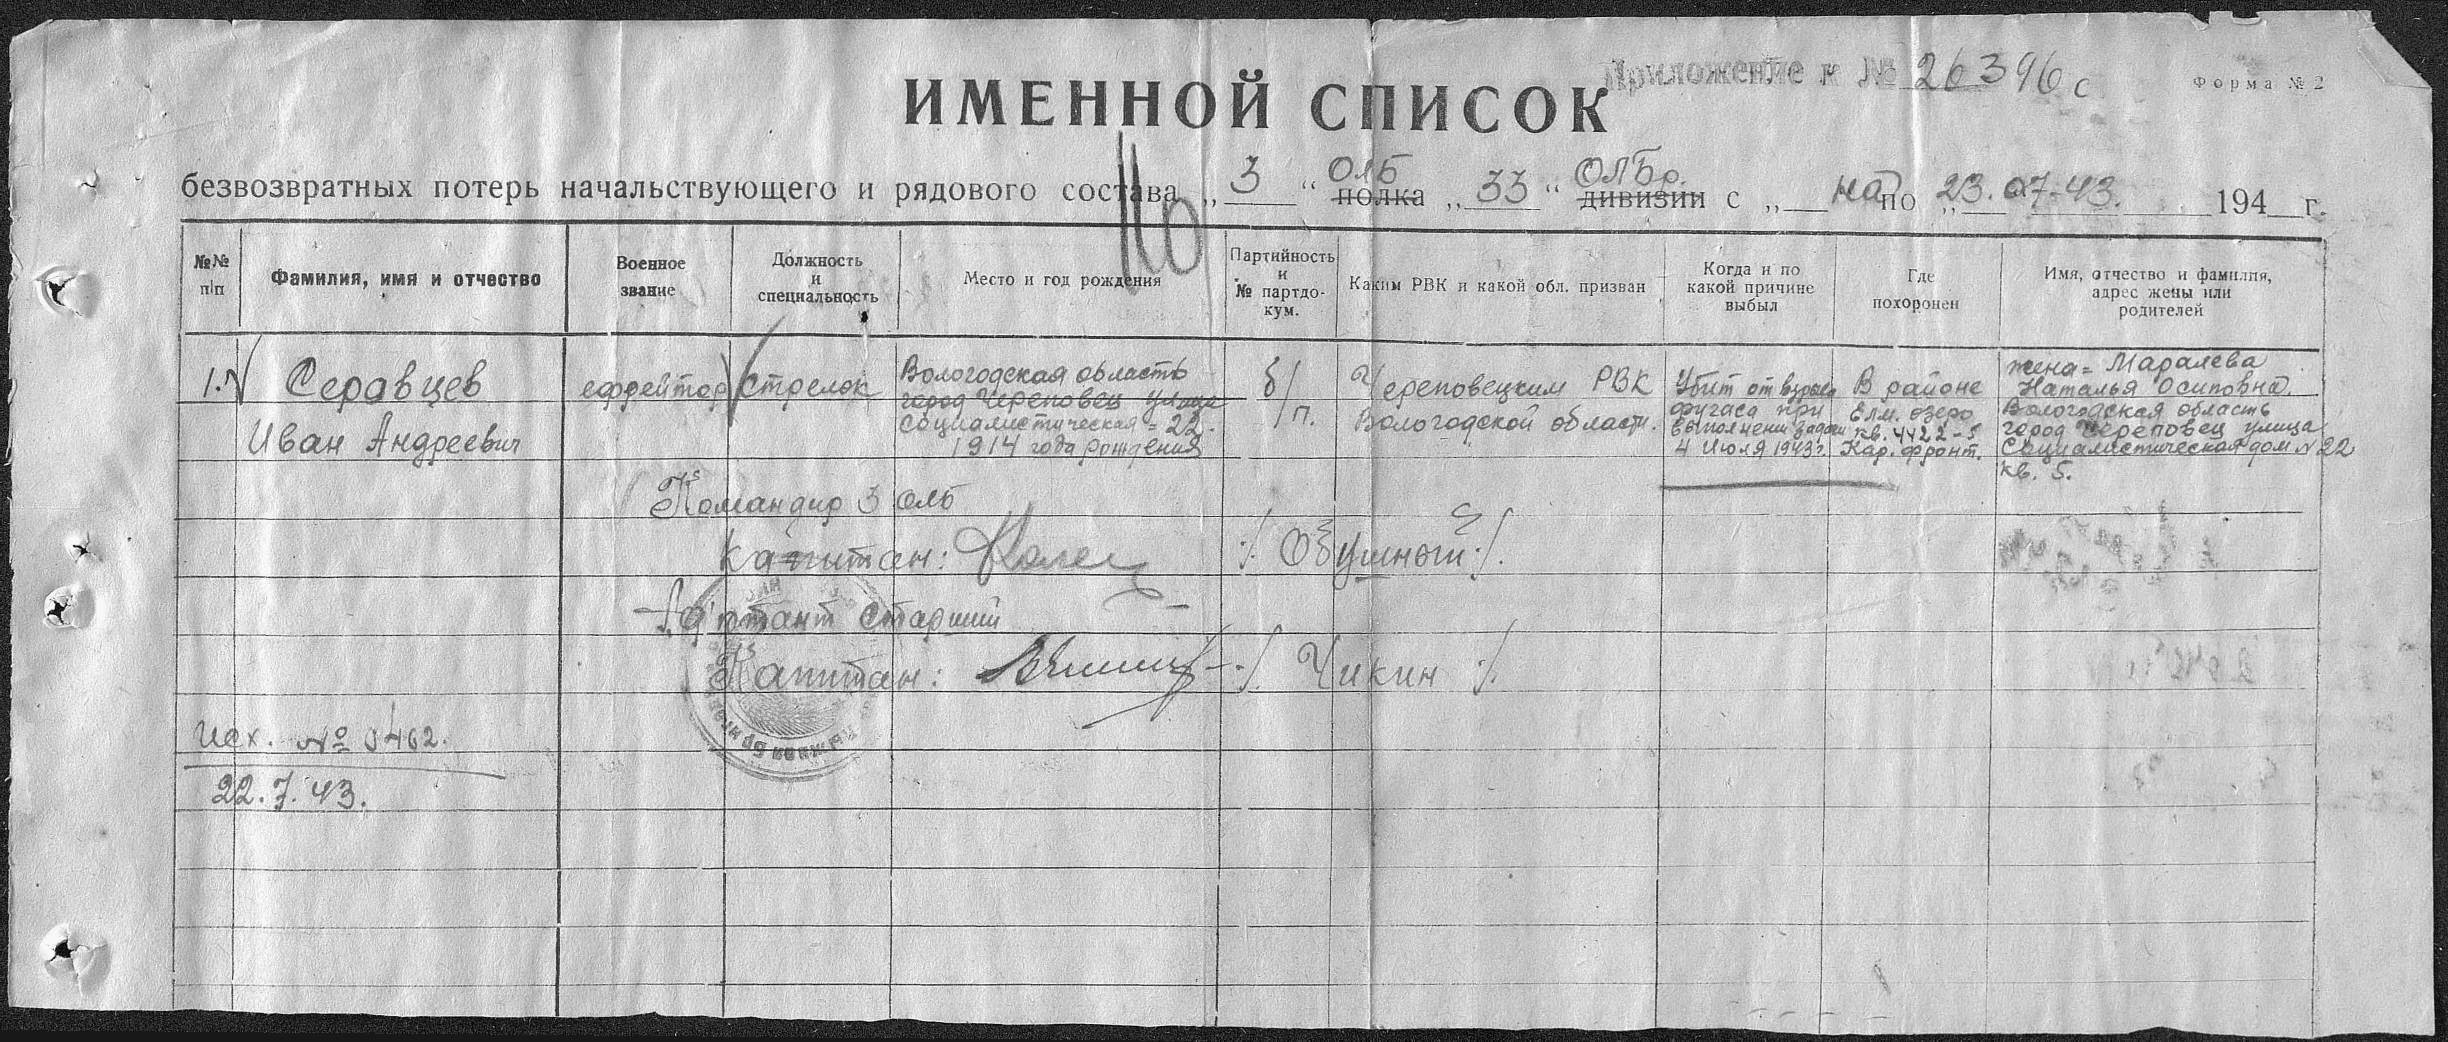 Приложение к № 26396с
Форма № 2
ИМЕННОЙ СПИСОК
безвозвратных потерь начальствующего и рядового состава „ 3 “ ОЛБ полка „ 33 “ ОЛБр. дивизии с „ на по „ 23.07.43. 194 г.
№№ п/п
Фамилия, имя и отчество
Военное звание
Должность и специальность
Место и год рождения
Партийность и № партдо-кум.
Каким РВК и какой обл. призван
Когда и по какой причине выбыл
Где похоронен
Имя, отчество и фамилия, адрес жены или родителей
1.
Серавцев
Иван Андреевич
ефрейтор
стрелок
Вологодская область
город Череповец улица
Социалистическая = 22.
1914 года рождения
б/п.
Череповецким РВК
Вологодской области.
Убит от взрыва
фугаса при
выполнени задачи
4 Июля 1943г.
В районе
Елм. озеро
кв. 4422-5
Кар. фронт.
жена = Маралева
Наталья Осиповна.
Вологодская область
город Череповец улица
Социалистическая дом № 22
кв. 5.
Командир 3 ОЛБ
капитан: ./. Обушный ./.
Ад'ютант старший
Капитан: ./. Чикин ./.
исх. № 0462.
22.7.43.